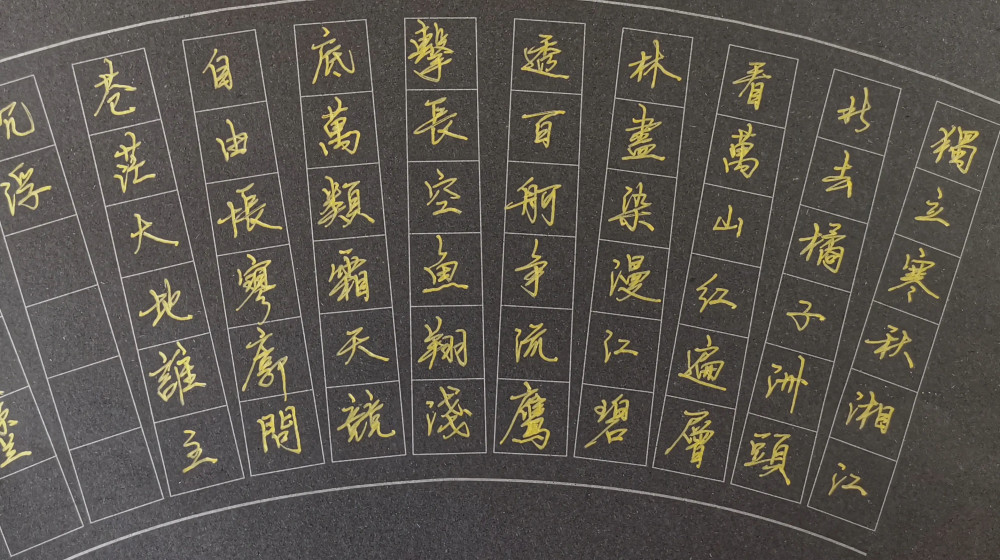 獨立寒秋湘江
北去橘子洲頭
看萬山紅遍層
林盡染漫江碧
透百舸争流鷹
擊長空魚翔淺
底萬類霜天競
自由悵寥廓問
苍茫大地誰主
沉浮